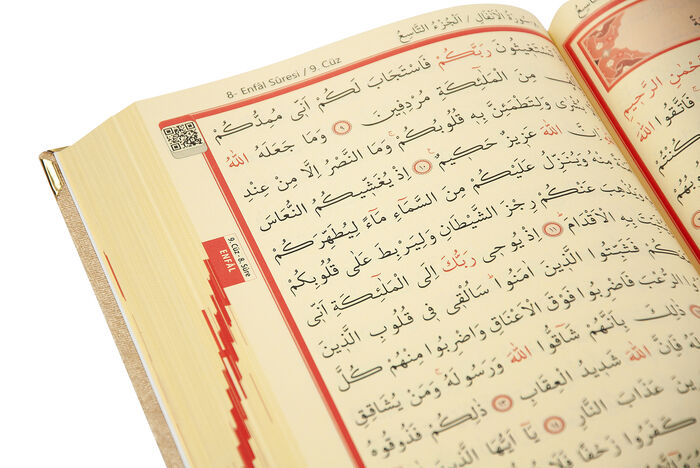 8- Enfâl Sûresi / 9. Cüz
سُورَةُ الْاَنْفَالِ / اَلْجُزْءُ التَّاسِعُ
رَبَّكُمْ فَاسْتَجَابَ لَكُمْ اَنّ۪ى مُمِدُّكُمْ
مِنَ الْمَلٰٓئِكَةِ مُرْدِف۪ينَ ﴿٩﴾ وَمَا جَعَلَهُ اللّٰهُ
وَلِتَطْمَئِنَّ بِه۪ قُلُوبُكُمْ وَمَا النَّصْرُ اِلَّا مِنْ عِنْدِ
اللّٰهَ عَز۪يزٌ حَك۪يمٌ ﴿١٠﴾ اِذْ يُغَشّ۪يكُمُ النُّعَاسَ
مِنْهُ وَيُنَزِّلُ عَلَيْكُمْ مِنَ السَّمَٓاءِ مَٓاءً لِيُطَهِّرَكُمْ
عَنْكُمْ رِجْزَ الشَّيْطَانِ وَلِيَرْبِطَ عَلٰى قُلُوبِكُمْ
بِهِ الْاَقْدَامَ ﴿١١﴾ اِذْ يُوح۪ى رَبُّكَ اِلَى الْمَلٰٓئِكَةِ اَنّ۪ى
فَثَبِّتُوا الَّذ۪ينَ اٰمَنُوا سَاُلْق۪ى ف۪ى قُلُوبِ الَّذ۪ينَ
الرُّعْبَ فَاضْرِبُوا فَوْقَ الْاَعْنَاقِ وَاضْرِبُوا مِنْهُمْ كُلَّ
ذٰلِكَ بِاَنَّهُمْ شَٓاقُّوا اللّٰهَ وَرَسُولَهُ وَمَنْ يُشَاقِقِ
فَاِنَّ اللّٰهَ شَد۪يدُ الْعِقَابِ ﴿١٣﴾ ذٰلِكُمْ فَذُوقُوهُ
عَذَابَ النَّارِ ﴿١٤﴾ يَٓا اَيُّهَا الَّذ۪ينَ
كَفَرُوا زَحْفًا
9. Cüz - 8. Sûre
ENFÂL
الرَّح۪يمِ
فَاتَّقُوا
كُنْتُمْ